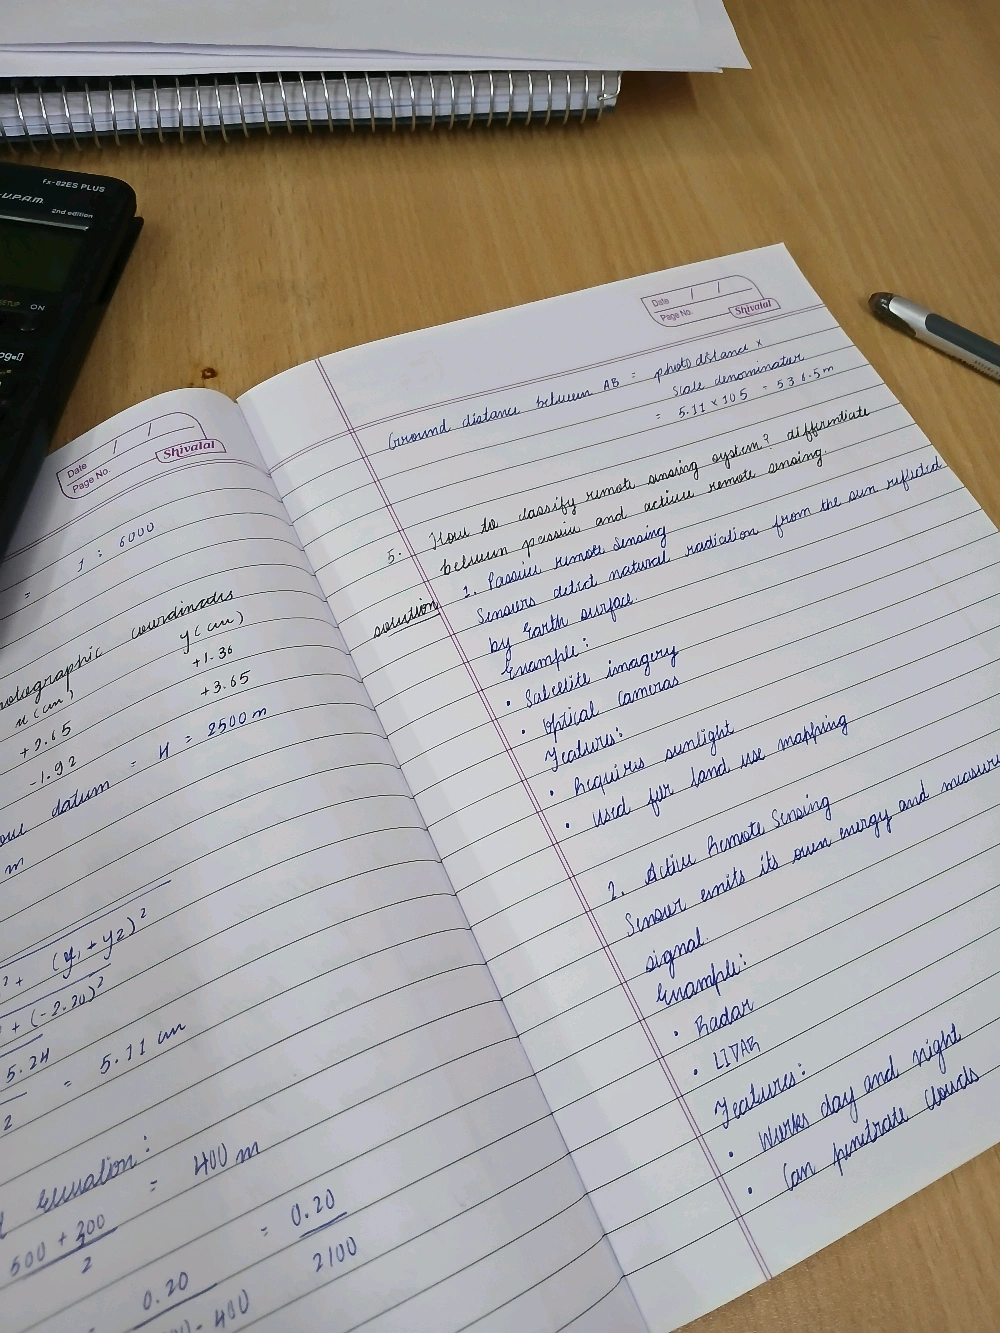 fx-82ES PLUS
-V.P.A.M.
2nd edition
SETUP ON
Date / /
Page No.
Shivalal
1 : 6000
=
coordinates
x (cm) y (cm)
+1.36
-1.92 +3.65
datum = H = 2500 m
m
² + (y₁ + y2)²
² + (-2.20)²
5.24
2
= 5.11 cm
Equation:
500 + 300
2
= 400 m
0.20
- 400
= 0.20
2100
Date / /
Page No.
Shivalal
Ground distance between AB = photo distance ×
scale denominator
= 5.11 × 105 = 536.5 m
5. How to classify remote sensing system? differentiate
between passive and active remote sensing.
solution 1. Passive remote sensing
Sensors detect natural radiation from the sun reflected
by Earth surface.
Example:
• Satellite imagery
• Optical cameras
Features:
• Requires sunlight
• Used for land use mapping
2. Active Remote Sensing
Sensor emits its own energy and measure
signal.
Example:
• Radar
• LIDAR
Features:
• Works day and night
• Can penetrate clouds